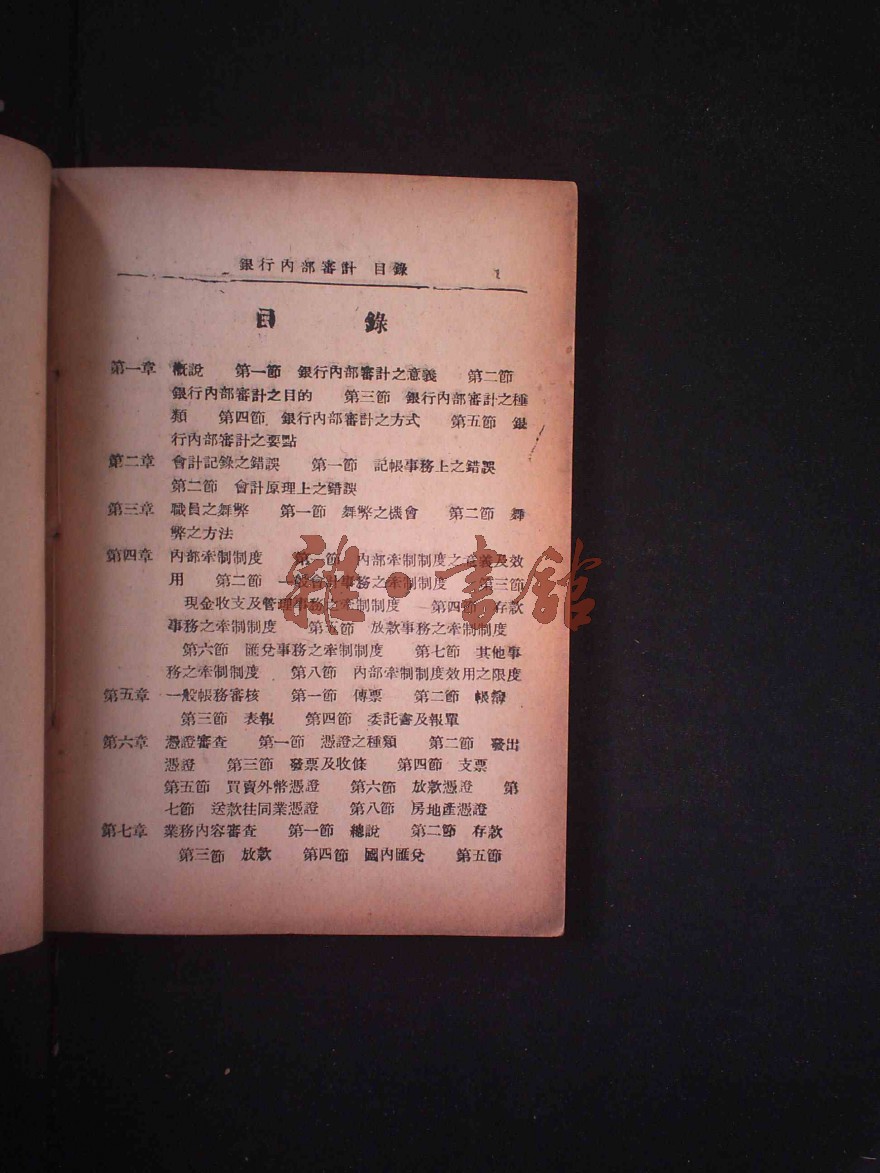 銀行內部審計 目錄 1
目 錄
第一章 概說 第一節 銀行內部審計之意義 第二節
銀行內部審計之目的 第三節 銀行內部審計之種
類 第四節 銀行內部審計之方式 第五節 銀
行內部審計之要點
第二章 會計記錄之錯誤 第一節 記帳事務上之錯誤
第二節 會計原理上之錯誤
第三章 職員之舞弊 第一節 舞弊之機會 第二節 舞
弊之方法
第四章 內部牽制制度 第一節 內部牽制制度之意義及效
用 第二節 一般會計事務之牽制制度 第三節
現金收支及管理事務之牽制制度 第四節 存款
事務之牽制制度 第五節 放款事務之牽制制度
第六節 匯兌事務之牽制制度 第七節 其他事
務之牽制制度 第八節 內部牽制制度效用之限度
第五章 一般帳務審核 第一節 傳票 第二節 帳簿
第三節 表報 第四節 委託書及報單
第六章 憑證審查 第一節 憑證之種類 第二節 發出
憑證 第三節 發票及收條 第四節 支票
第五節 買賣外幣憑證 第六節 放款憑證 第
七節 送款往同業憑證 第八節 房地產憑證
第七章 業務內容審查 第一節 總說 第二節 存款
第三節 放款 第四節 國內匯兌 第五節
雜·書館